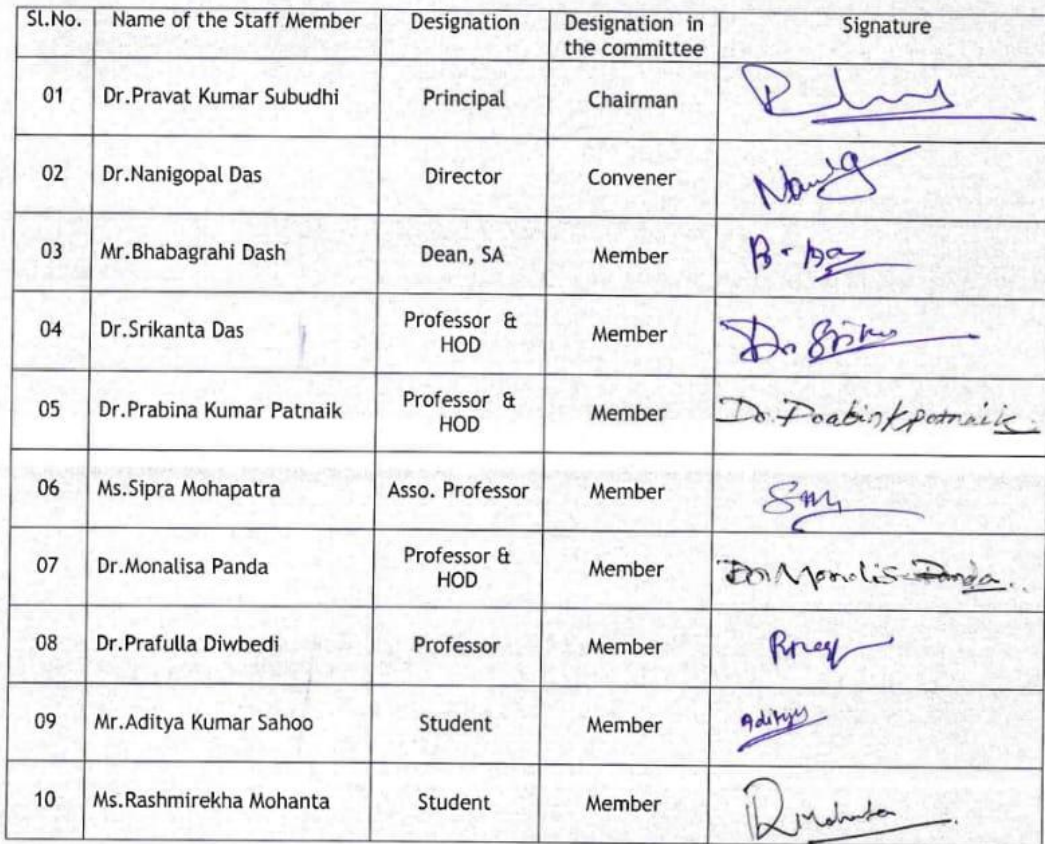 Sl.No. Name of the Staff Member Designation Designation in the committee Signature
01 Dr.Pravat Kumar Subudhi Principal Chairman
02 Dr.Nanigopal Das Director Convener
03 Mr.Bhabagrahi Dash Dean, SA Member
04 Dr.Srikanta Das Professor & HOD Member
05 Dr.Prabina Kumar Patnaik Professor & HOD Member
06 Ms.Sipra Mohapatra Asso. Professor Member
07 Dr.Monalisa Panda Professor & HOD Member
08 Dr.Prafulla Diwbedi Professor Member
09 Mr.Aditya Kumar Sahoo Student Member
10 Ms.Rashmirekha Mohanta Student Member